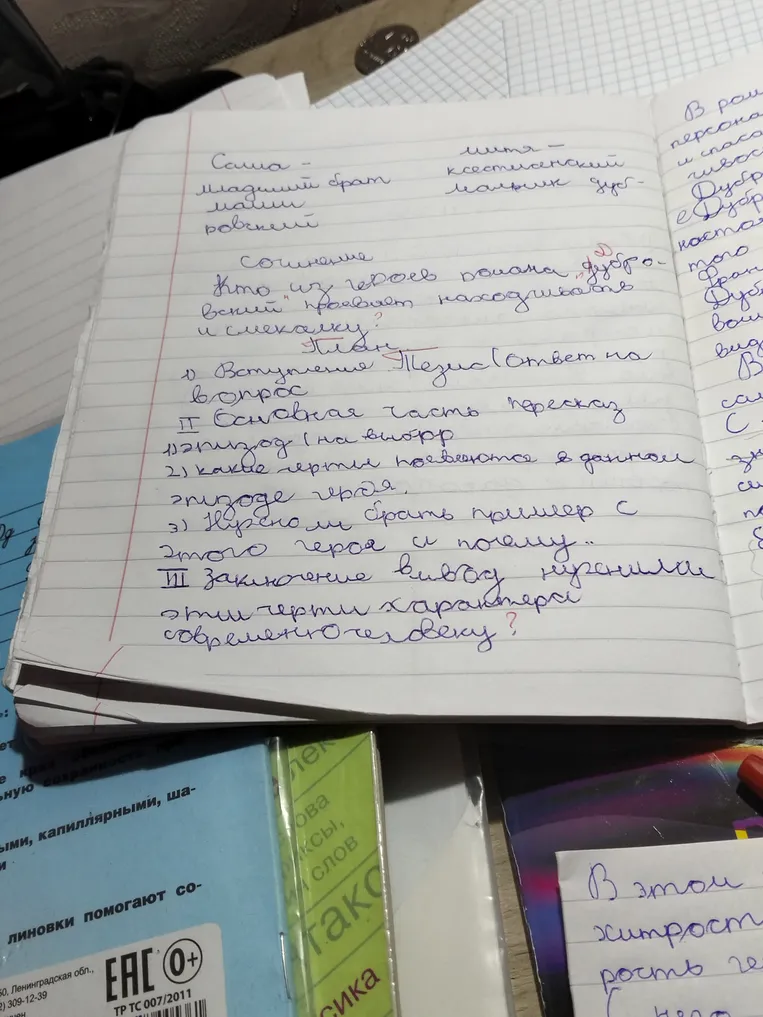 Саша –
младший брат
маши
ровский
митя –
ксестиенский
мальчик дуб-
Сочинение
Кто из героев романа „Дубро-
вский" проевяет находчивость
и смекалку?
План
1) Вступление Тезис (ответ на
вопрос
II Основная часть пересказ
1) эпизод (на выбрр
2) какие черти поевеются в данном
эпизоде героя.
3) Нужно ли брать пример с
этого героя и почему..
III Заключение вывод нужнили
эти черти характера
современючеловеку?
В ром
персона
и спасо
чивос
Дубр
е Дубр
настоя
того
Фран
Дубр
вош
вид
В
сам
С
зн
си
по
ыми, капиллярными, ша-
и
линовки помогают со-
50, Ленинградская обл.,
2) 309-12-39
ЕАС
0+
ТР ТС 007/2011
лек
ова
ксы,
слов
тако
сика
В этом
хитрост
рость ге
С него